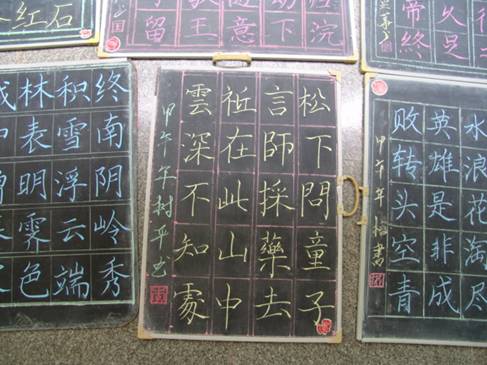 红石
浣
下
意
王
留
久足
帝終
终南阴岭秀
积雪浮云端
林表明霁色
松下問童子
言師採藥去
祗在此山中
雲深不知處
甲午年树平书
水浪花淘尽
英雄是非成
败转头空青
甲午年松書